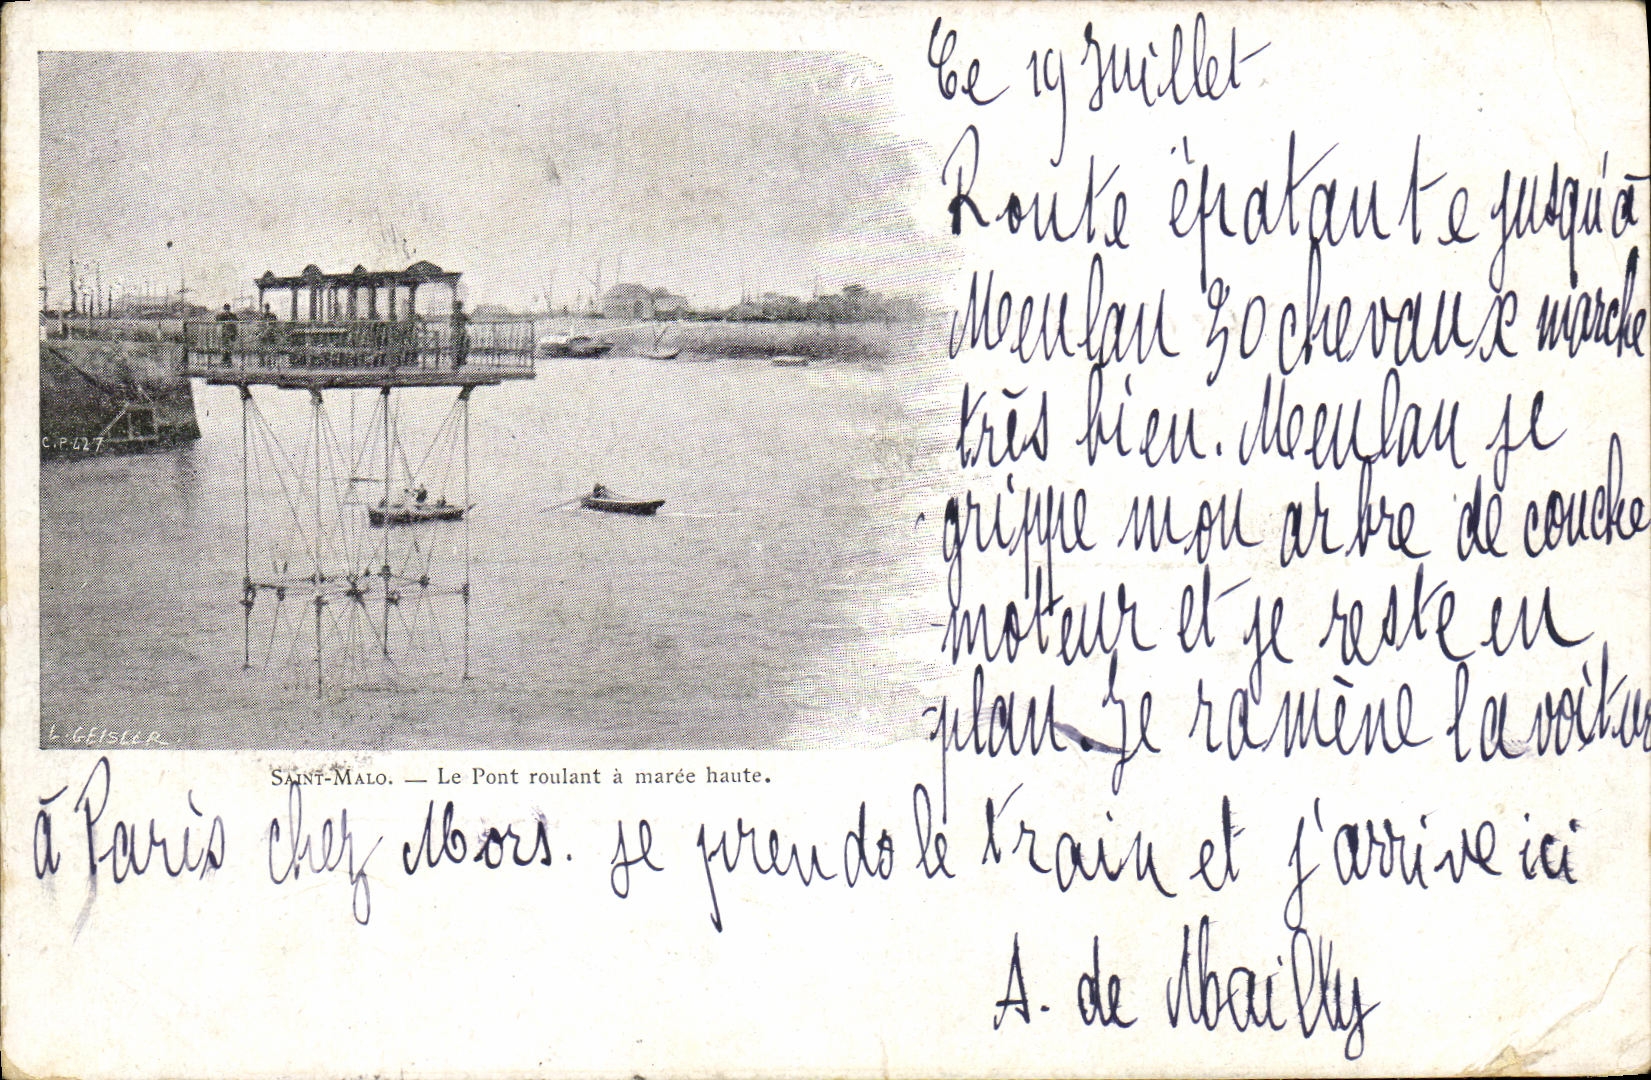 Ce 19 Juillet
Route épatante jusqu'à
Meulan 30 chevaux marche
très bien. Meulan je
grippe mon arbre de couche
moteur et je reste en
plan. Je ramène la voiture
à Paris chez Mors. Je prends le train et j'arrive ici
A. de Mailly
C.P. 427
L. GEISLER
SAINT-MALO. — Le Pont roulant à marée haute.